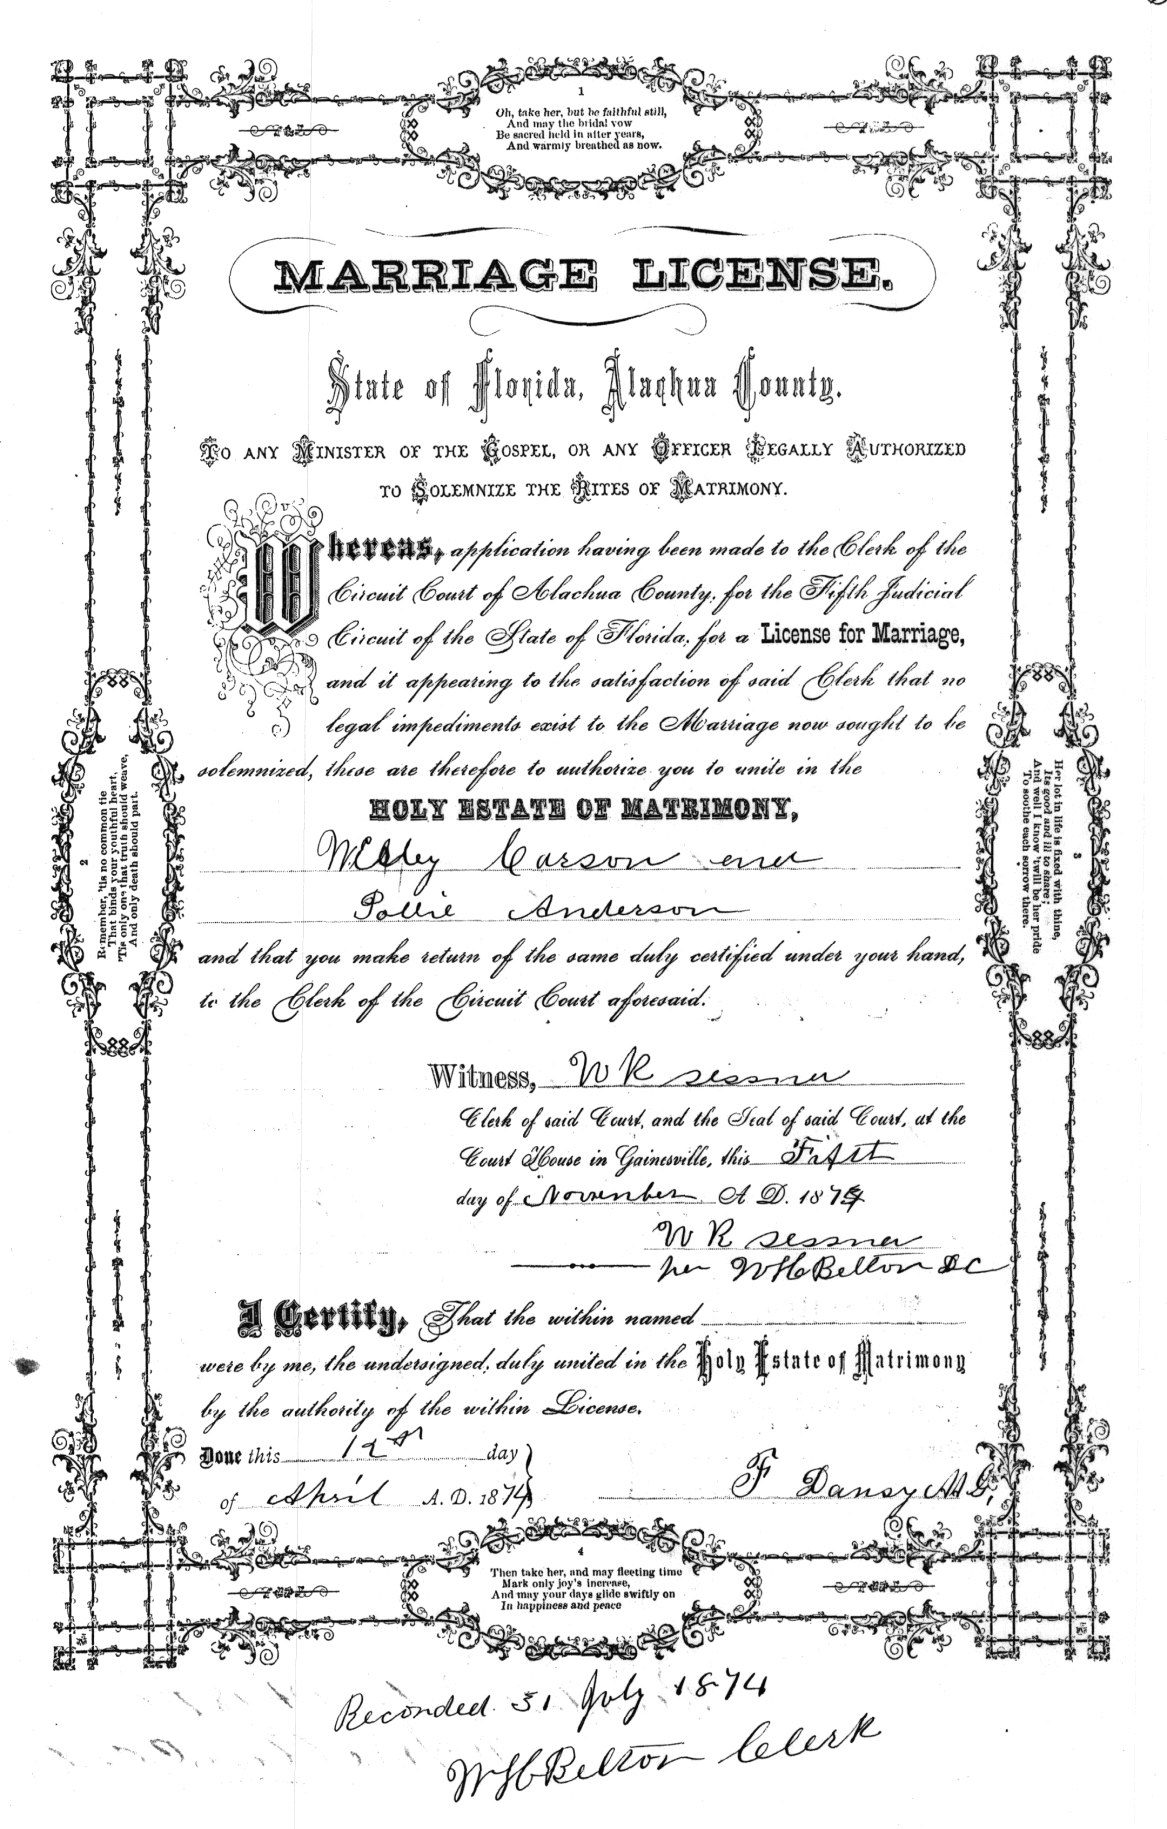 1
Oh, take her, but be faithful still,
And may the bridal vow
Be sacred held in after years,
And warmly breathed as now.
MARRIAGE LICENSE.
State of Florida, Alachua County.
TO ANY MINISTER OF THE GOSPEL, OR ANY OFFICER LEGALLY AUTHORIZED
TO SOLEMNIZE THE RITES OF MATRIMONY.
Whereas, application having been made to the Clerk of the
Circuit Court of Alachua County, for the Fifth Judicial
Circuit of the State of Florida, for a License for Marriage,
and it appearing to the satisfaction of said Clerk that no
legal impediments exist to the Marriage now sought to be
solemnized, these are therefore to authorize you to unite in the
HOLY ESTATE OF MATRIMONY,
Carson and
Pollie Anderson
and that you make return of the same duly certified under your hand,
to the Clerk of the Circuit Court aforesaid.
2
Remember, 'tis no common tie
That binds your youthful heart,
'Tis only one that truth should weave,
And only death should part.
3
Her lot in life is fixed with thine,
Its good and ill to share;
And well I know 'twill be her pride
To soothe each sorrow there.
Witness, W K sessner
Clerk of said Court, and the Seal of said Court, at the
Court House in Gainesville, this Fifth
day of November A D. 187
W K sessner
per W H Belton DC
I Certify, That the within named
were by me, the undersigned, duly united in the Holy Estate of Matrimony
by the authority of the within License.
Done this 12 day
of April A. D. 1874
F Dansy M G,
4
Then take her, and may fleeting time
Mark only joy's increase,
And may your days glide swiftly on
In happiness and peace
Recorded 31 July 1874
W H Belton Clerk